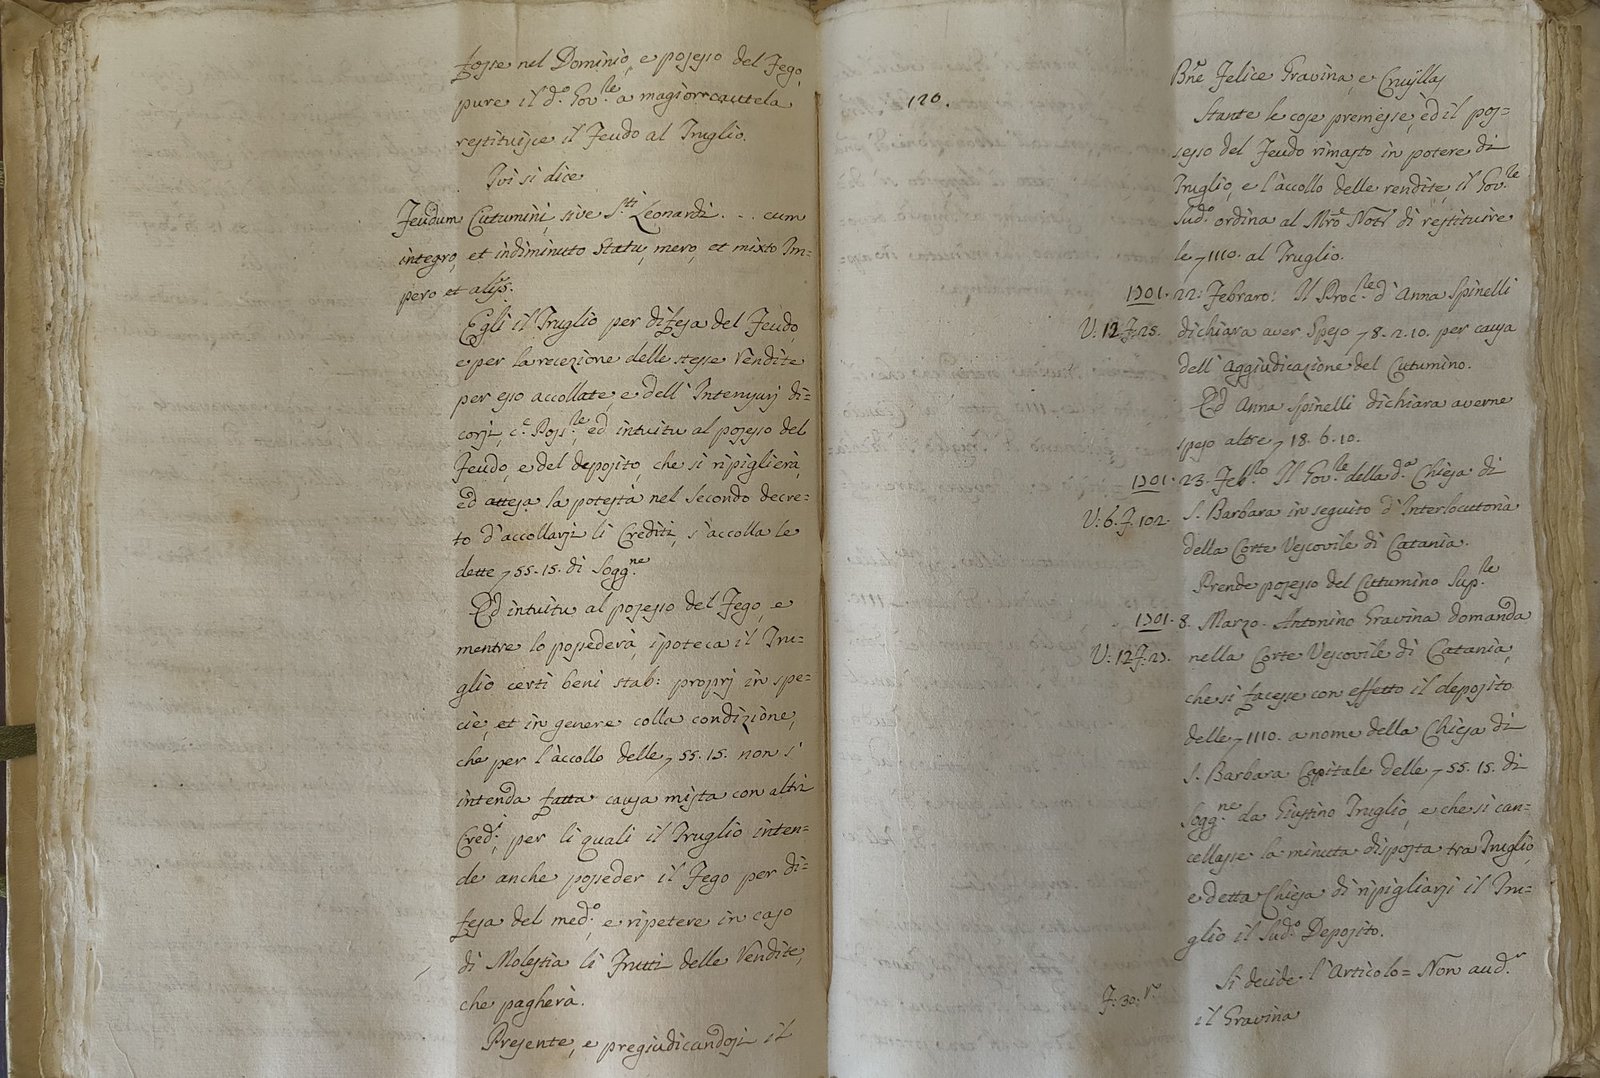 fosse nel Dominio, e possesso del Fego,
pure il d.º Gov.le a magior cautela
restituisce il Feudo al Truglio.
Ivi si dice
Feudum Cutumini, sive S.ti Leonardi . . . cum
integro, et indiminuto statu, mero, et mixto Im=
pero et alijs.
Egli il Truglio per difesa del Feudo,
e per la recezione delle stesse Vendite
per esso accollate, e dell'
corsi, c.e Poss.le, ed intuitu al possesso del
Feudo, e del deposito, che si ripiglierà,
ed attesa la potestà nel secondo decre=
to d'accollarsi li Crediti, s'accolla le
dette 55.15. di Sogg.ne
Ed intuitu al possesso del Fego, e
mentre lo possederà, ipoteca il Tru=
glio certi beni stab: proprj in spe=
cie, et in genere colla condizione,
che per l'accollo delle 55.15. non s'
intenda fatta causa mista con altri
Cred.i, per li quali il Truglio inten=
de anche posseder il Fego per di=
fesa del med.º, e ripetere in caso
di Molestia li Frutti delle Vendite,
che pagherà.
Presente, e pregiudicandosi il
120.
B.ne Felice Gravina, e Cruÿllas
Stante le cose premesse, ed il pos=
sesso del Feudo rimasto in potere di
Truglio, e l'accollo delle rendite, il Gov.le
Sud.º ordina al Mro Notº di restituire
le 1110. al Truglio.
1701. 22. Febraro. Il Proc.le d'Anna Spinelli
V: 12 F: 25. dichiara aver speso 8.2.10. per causa
dell'Aggiudicazione del Cutumino.
Ed Anna Spinelli dichiara averne
speso altre 18.6.10.
1701. 23. Feb.ro Il Gov.le della d.a Chiesa di
V: 6. F. 102. S. Barbara in seguito d'Interlocutoria
della Corte Vescovile di Catania.
Prende possesso del Cuttumino Sup.le
1701. 8. Marzo. Antonino Gravina domanda
V: 12 F: 23. nella Corte Vescovile di Catania,
che si facesse con effetto il deposito
delle 1110. a nome della Chiesa di
S. Barbara Capitale delle 55.15. di
Sogg.ne da Giustino Truglio, e che si can=
cellasse la minuta disposta tra Truglio,
e detta Chiesa di ripigliarsi il Tru=
glio il Sud.º Deposito.
Si decide l'Articolo = Non aud.r
F: 30. r.º il Gravina